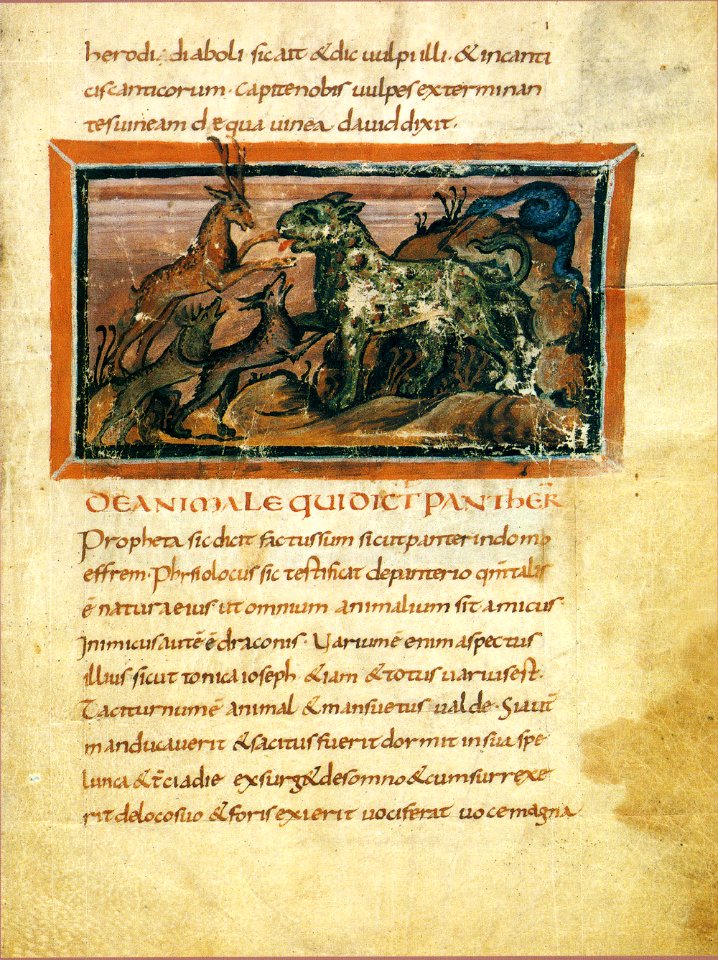 herodi; diaboli sic ait & dic vulpi illi · & incanti
cis canticorum · Capite nobis vulpes exterminan
tes vineam de qua vinea david dixit ·
DE ANIMALE QUI DICIT PANTHER
Propheta sic dicit factus sum sicut panter in domo
effrem · Phisiolocus sic testificat de panterio qm̄ talis
ē natura eius ut omnium animalium sit amicus
Inimicus autē ē draconis · Varium ē enim aspectus
illius sicut tonica ioseph & iam & totus varius est ·
Taciturnum ē animal & mansuetus valde · Si aut̄
manducaverit & sacitus fuerit dormit in sua spe
lunca & t̄cia die exsurg& de somno & cum surrexe
rit de loco suo & foris exierit vociferat voce magna